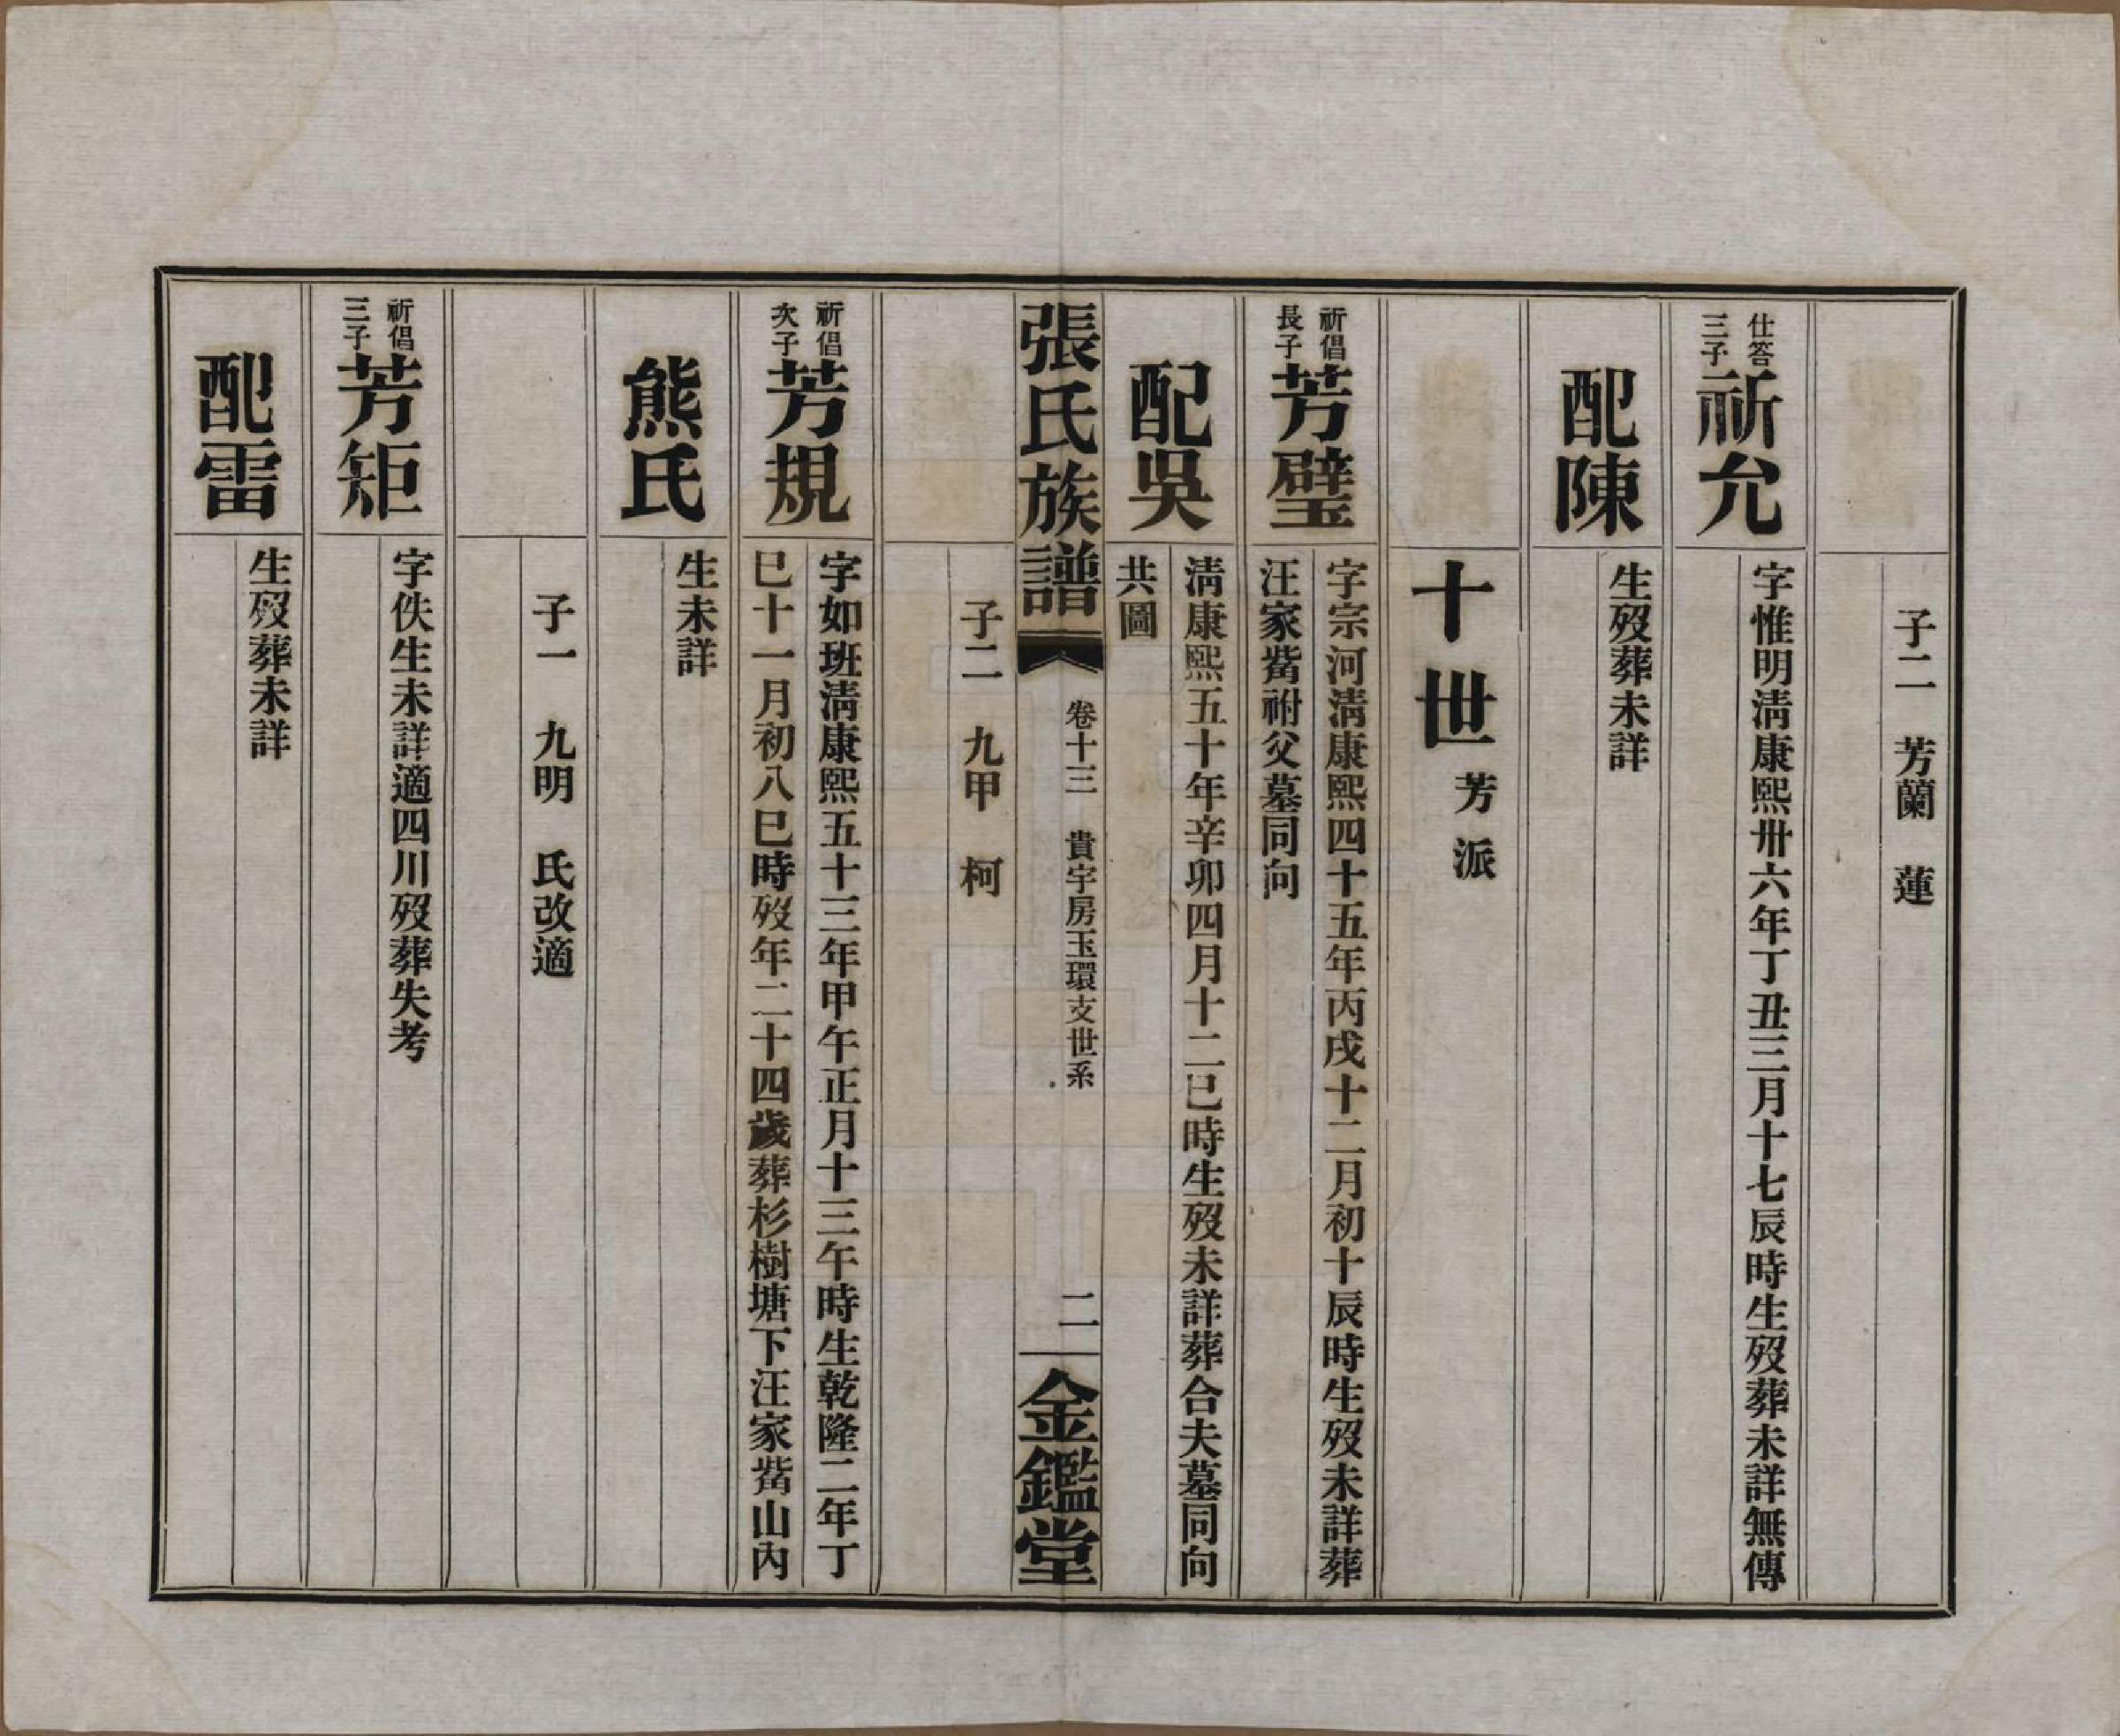 子二　芳蘭　蓮
仕答三子
祈允
字惟明淸康熙卅六年丁丑三月十七辰時生歿葬未詳無傳
配陳
生歿葬未詳
十世芳派
祈倡長子
芳璧
字宗河淸康熙四十五年丙戌十二月初十辰時生歿未詳葬
汪家嵴祔父墓同向
配吳
淸康熙五十年辛卯四月十二巳時生歿未詳葬合夫墓同向
共圖
張氏族譜
卷十三　貴宇房玉環支世系
二
金鑑堂
子二　九甲　柯
祈倡次子
芳規
字如班淸康熙五十三年甲午正月十三午時生乾隆二年丁
巳十一月初八巳時歿年二十四歲葬杉樹塘下汪家嵴山內
熊氏
生未詳
子一　九明　氏改適
祈倡三子
芳矩
字佚生未詳適四川歿葬失考
配雷
生歿葬未詳